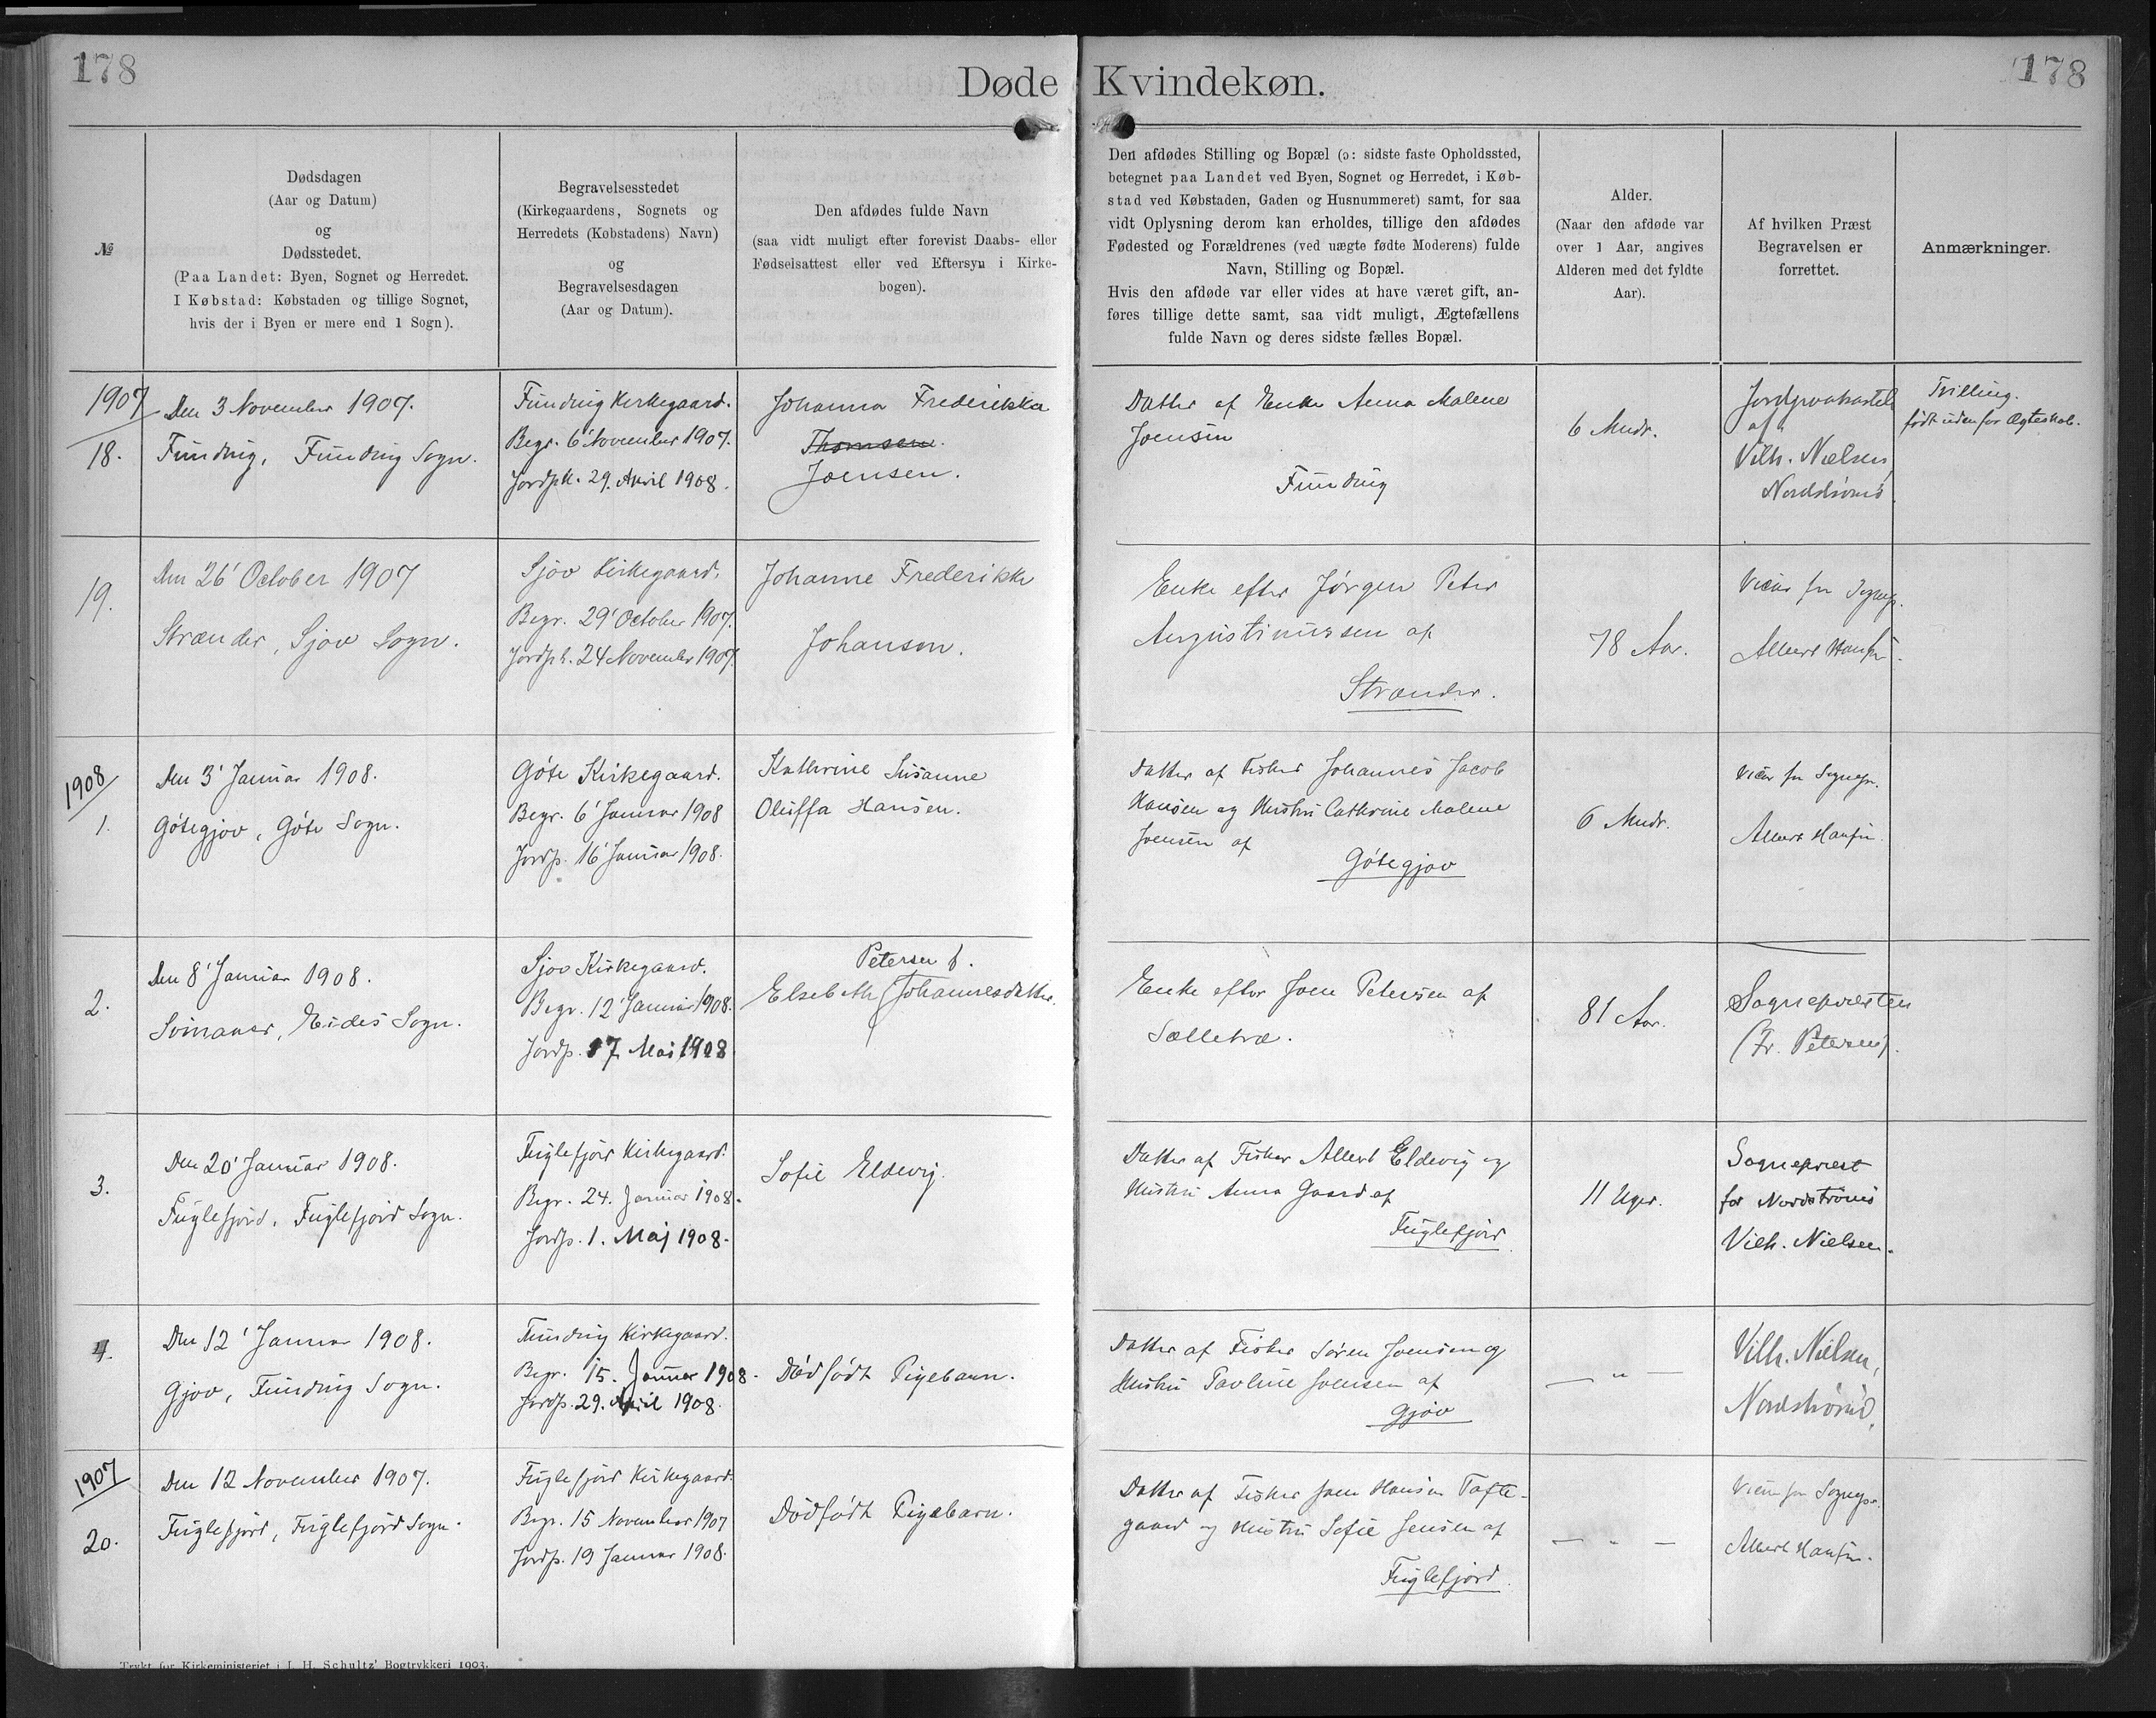 178
Døde Kvindekøn.
178
№
Dødsdagen
(Aar og Datum)
og
Dødsstedet.
(Paa Landet: Byen, Sognet og Herredet.
I Købstad: Købstaden og tillige Sognet,
hvis der i Byen er mere end 1 Sogn).
Begravelsesstedet
(Kirkegaardens, Sognets og
Herredets (Købstadens) Navn)
og
Begravelsesdagen
(Aar og Datum).
Den afdødes fulde Navn
(saa vidt muligt efter forevist Daabs- eller
Fødselsattest eller ved Eftersyn i Kirke-
bogen).
Den afdødes Stilling og Bopæl (ɔ: sidste faste Opholdssted,
betegnet paa Landet ved Byen, Sognet og Herredet, i Køb-
stad ved Købstaden, Gaden og Husnummeret) samt, for saa
vidt Oplysning derom kan erholdes, tillige den afdødes
Fødested og Forældrenes (ved uægte fødte Moderens) fulde
Navn, Stilling og Bopæl.
Hvis den afdøde var eller vides at have været gift, an-
føres tillige dette samt, saa vidt muligt, Ægtefællens
fulde Navn og deres sidste fælles Bopæl.
Alder.
(Naar den afdøde var
over 1 Aar, angives
Alderen med det fyldte
Aar).
Af hvilken Præst
Begravelsen er
forrettet.
Anmærkninger.
1907
18.
Den 3 November 1907.
Funding, Funding Sogn.
Funding Kirkegaard.
Begr. 6' November 1907.
Jordpk. 29. April 1908.
Johanna Frederikka
Thomsen.
Joensen.
Datter af Enke Anna Malene
Joensen
Funding
6 Mndr.
Jordpaakastelse
af
Vilh. Nielsen
Nordstrømø.
Tvilling.
født udenfor Ægteskab.
19.
Den 26' October 1907
Strænder, Sjov Sogn.
Sjov Kirkegaard.
Begr. 29' October 1907.
Jordpk. 24 November 1907.
Johanne Frederikke
Johanson.
Enke efter Jørgen Peter
Augustinussen af
Strænder.
78 Aar.
Vicar for Sognepr.
Albert Hansen.
1908
1.
Den 3' Januar 1908.
Gøtegjov, Gøte Sogn.
Gøte Kirkegaard.
Begr. 6' Januar 1908
Jordp. 16' Januar 1908.
Kathrine Susanne
Oluffa Hansen.
Datter af Fisker Johannes Jacob
Hansen og Hustru Cathrine Malene
Joensen af
Gøtegjov
6 Mndr.
Vicar for Sognepr.
Albert Hansen.
2.
Den 8' Januar 1908.
Eides Sogn.
Sjov Kirkegaard.
Begr. 12' Januar 1908.
Jordp. 17 Maj 1908
Petersen f.
Elsebeth Johannesdatter.
Enke efter Joen Petersen af
Selletræ.
81 Aar.
Sognepræsten
(Fr. Petersen).
3.
Den 20' Januar 1908.
Fuglefjord, Fuglefjord Sogn.
Fuglefjord Kirkegaard.
Begr. 24. Januar 1908.
Jordp. 1. Maj 1908.
Sofie Eldevig.
Datter af Fisker Albert Eldevig og
Hustru Anna Gaard af
Fuglefjord
11 Uger.
Sognepræst
for Nordstrømø
Vilh. Nielsen.
4.
Den 12' Januar 1908.
Gjov, Funding Sogn.
Funding Kirkegaard.
Begr. 15. Januar 1908.
Jordp. 29. April 1908.
Dødfødt Pigebarn.
Datter af Fisker Søren Joensen og
Hustru Pauline Joensen af
Gjov
— " —
Vilh. Nielsen,
Nordstrømø.
1907
20.
Den 12 November 1907.
Fuglefjord, Fuglefjord Sogn.
Fuglefjord Kirkegaard.
Begr. 15 November 1907
Jordp. 19 Januar 1908.
Dødfødt Pigebarn.
Datter af Fisker Joen Hansen Tofte-
gaard og Hustru Sofie Jensen af
Fuglefjord.
— " —
Vicar for Sognepr.
Albert Hansen.
Trykt for Kirkeministeriet i J. H. Schultz' Bogtrykkeri 1903.